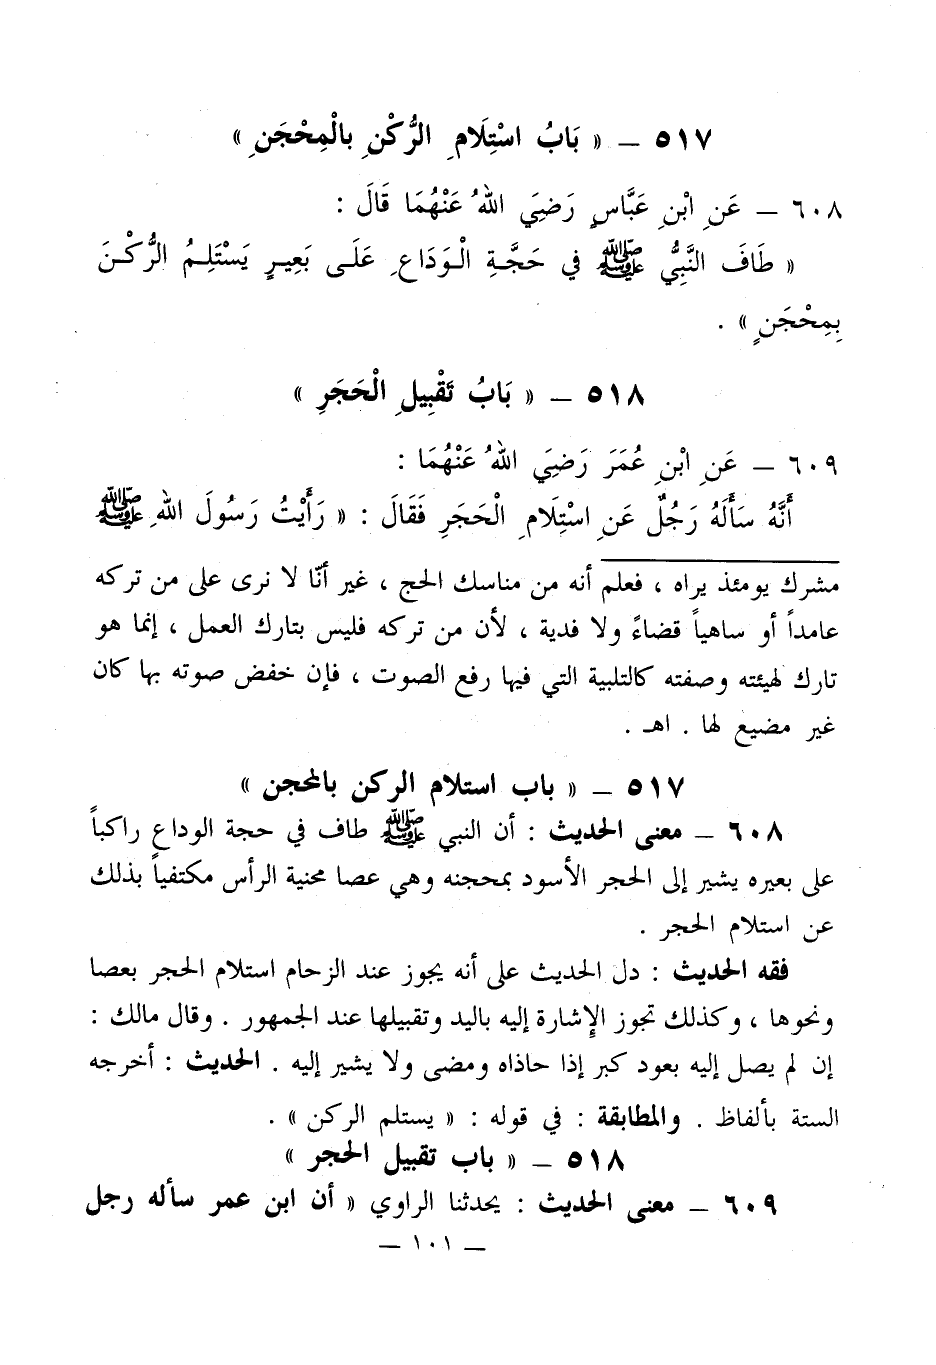 ٥١٧ – « بَابُ اسْتِلَامِ الرُّكْنِ بِالْمِحْجَنِ »
٦٠٨ – عَنِ ابْنِ عَبَّاسٍ رَضِيَ اللهُ عَنْهُمَا قَالَ :
« طَافَ النَّبِيُّ ﷺ في حَجَّةِ الْوَدَاعِ عَلَى بَعِيرٍ يَسْتَلِمُ الرُّكْنَ
بِمِحْجَنٍ » .
٥١٨ – « بَابُ تَقْبِيلِ الْحَجَرِ »
٦٠٩ – عَنِ ابْنِ عُمَرَ رَضِيَ اللهُ عَنْهُمَا :
أَنَّهُ سَأَلَهُ رَجُلٌ عَنِ اسْتِلَامِ الْحَجَرِ فَقَالَ : « رَأَيْتُ رَسُولَ اللهِ ﷺ
مشرك يومئذ يراه ، فعلم أنه من مناسك الحج ، غير أنّا لا نرى على من تركه
عامداً أو ساهياً قضاءً ولا فدية ، لأن من تركه فليس بتارك العمل ، إنما هو
تارك لهيئته وصفته كالتلبية التي فيها رفع الصوت ، فإن خفض صوته بها كان
غير مضيع لها . اهـ .
٥١٧ – « باب استلام الركن بالمحجن »
٦٠٨ – معنى الحديث : أن النبي ﷺ طاف في حجة الوداع راكباً
على بعيره يشير إلى الحجر الأسود بمحجنه وهي عصا محنية الرأس مكتفياً بذلك
عن استلام الحجر .
فقه الحديث : دل الحديث على أنه يجوز عند الزحام استلام الحجر بعصا
ونحوها ، وكذلك تجوز الإشارة إليه باليد وتقبيلها عند الجمهور . وقال مالك :
إن لم يصل إليه بعود كبر إذا حاذاه ومضى ولا يشير إليه . الحديث : أخرجه
الستة بألفاظ . والمطابقة : في قوله : « يستلم الركن » .
٥١٨ – « باب تقبيل الحجر »
٦٠٩ – معنى الحديث : يحدثنا الراوي « أن ابن عمر سأله رجل
– ١٠١ –